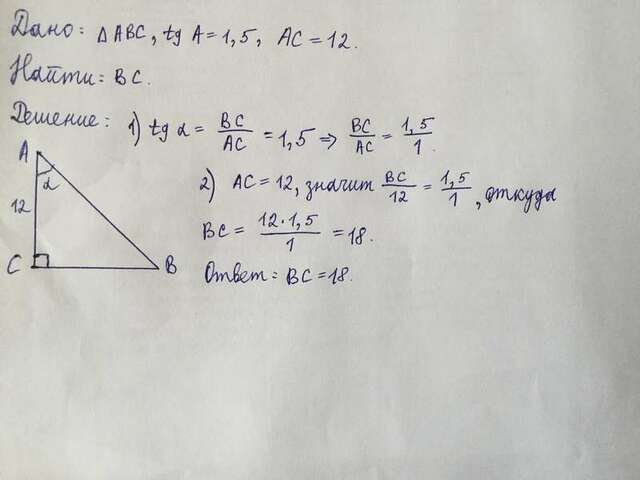 Дано: Δ ABC, tg A = 1,5, AC = 12.
Найти: BC.
Решение: 1) tg α = BC/AC = 1,5 ⇒ BC/AC = 1,5/1.
A
α
12
C
B
2) AC = 12, значит BC/12 = 1,5/1, откуда
BC = 12·1,5/1 = 18.
Ответ: BC = 18.